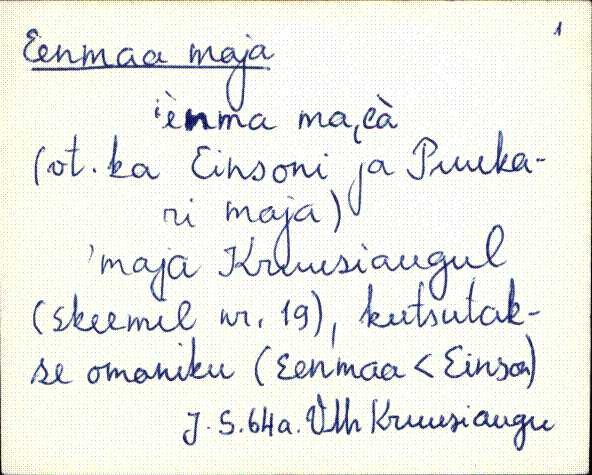 1
Eenmaa maja
ⁱènma ma,cà
(vt. ka Einsoni ja Puuka-
ri maja)
'maja Kruusiaugul
(skeemil nr. 19), kutsutak-
se omaniku (Eenmaa < Einson)
J. S. 64a. Kruusiaugu